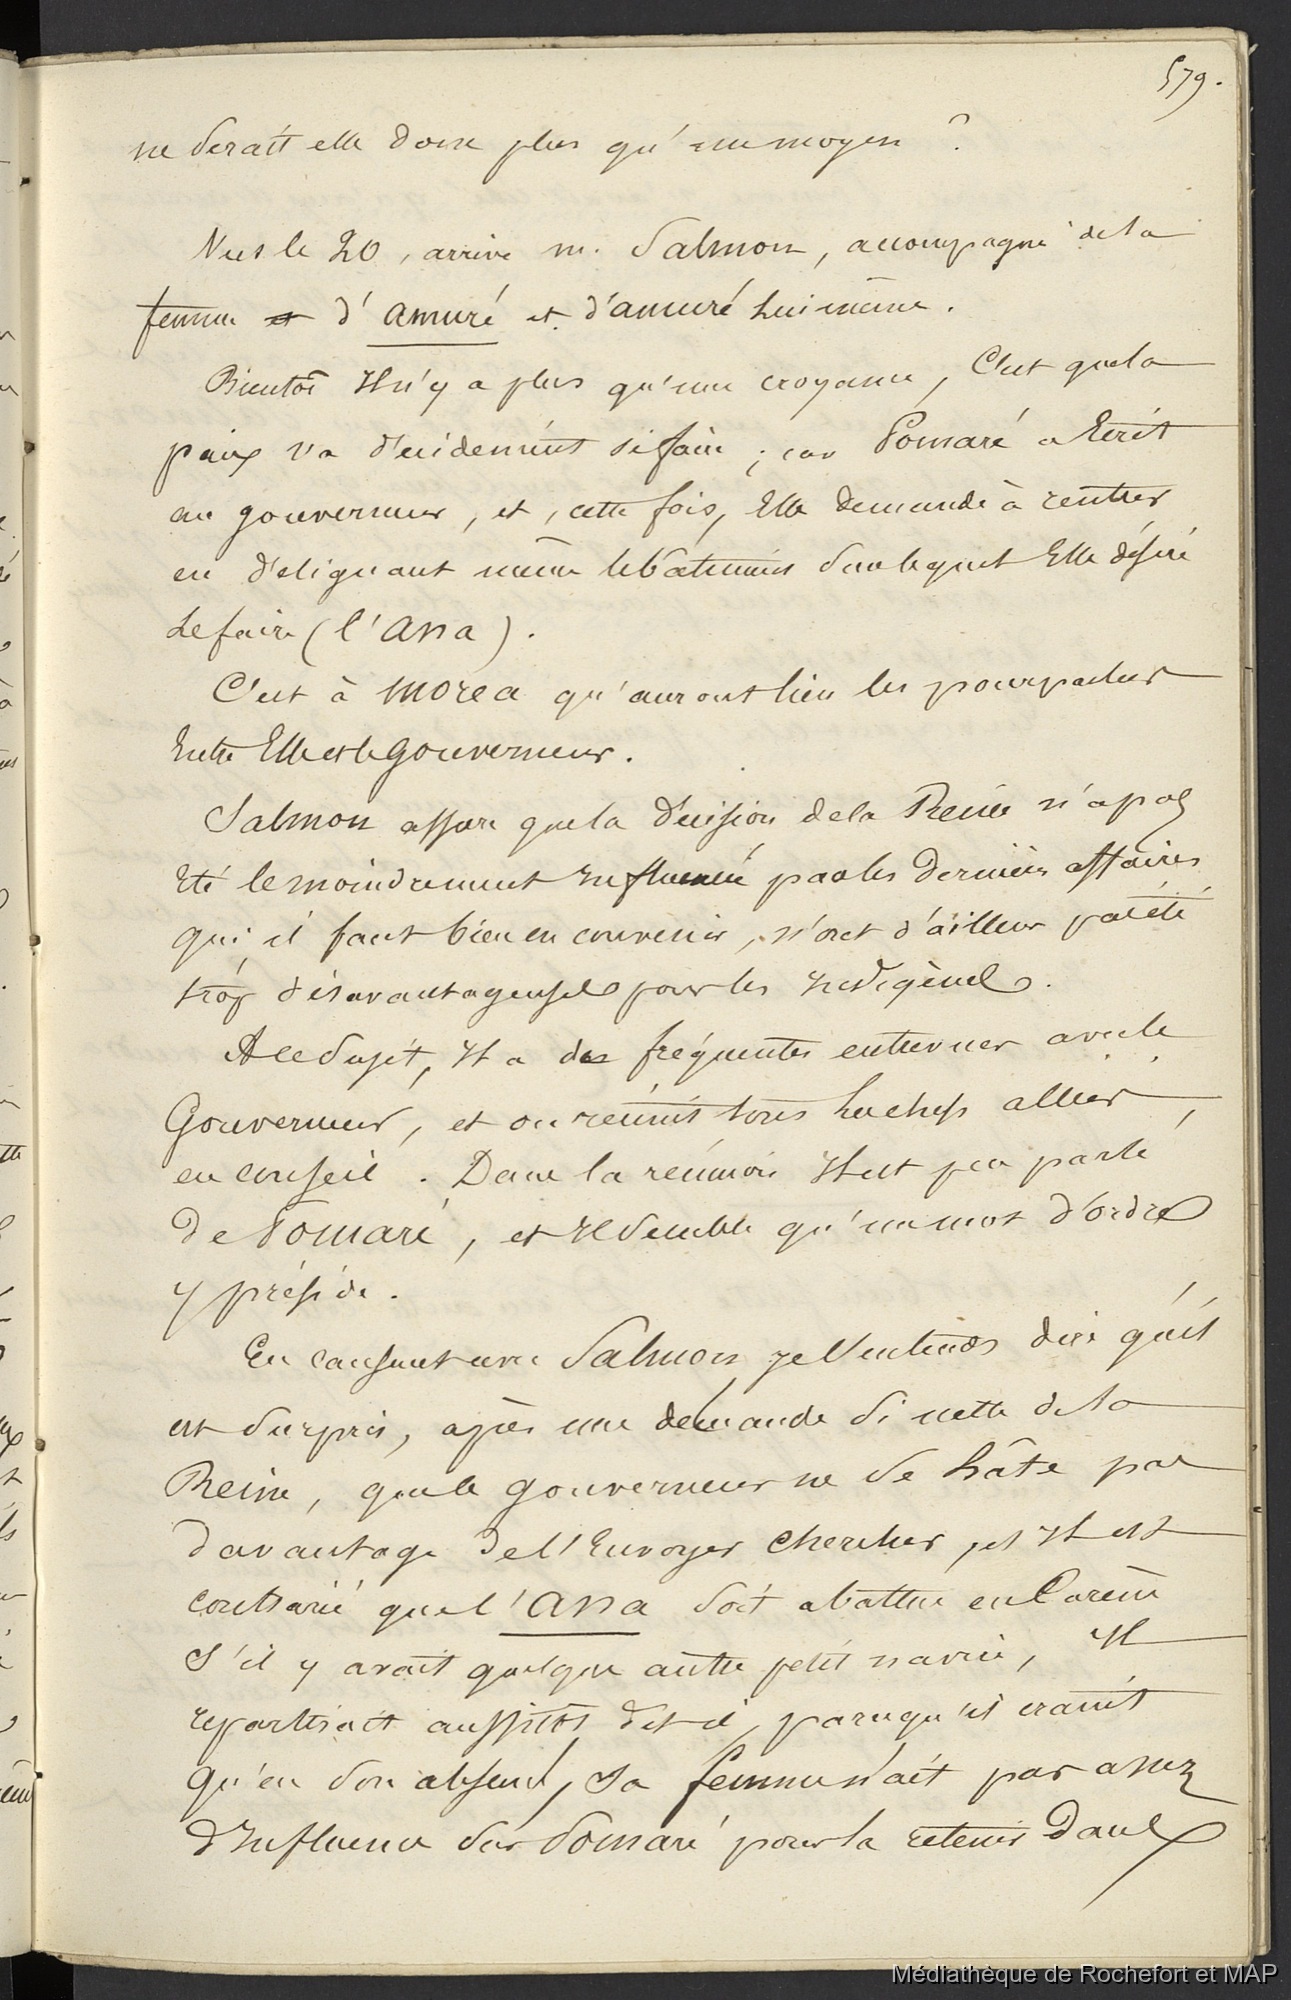 579.
ne serait elle donc plus qu'un moyen ?
Vers le 20, arrive m. Salmon, accompagné de sa
femme et d'Amuré et d'amuré lui même.
Bientôt Il n'y a plus qu'une croyance, C'est que la
paix va décidemment se faire ; car Pomaré a Ecrit
au gouverneur, et, cette fois, Elle demande à rentrer
en désignant même le bâtiment sur lequel Elle désire
le faire (l'Ana).
C'est à Morea qu'auront lieu les pourparlers
Entre Elle et le Gouverneur.
Salmon assure que la décision de la Reine n'a pas
Eté le moindrement Influencée par les dernières affaires
qui, il faut bien en convenir, n'ont d'ailleur pas été
trop désavantageuses pour les Indigènes.
A ce sujet, Il a de fréquentes entrevues avec le
Gouverneur, et on réunit tous les chefs alliés,
en conseil. Dans la réunion Il est peu parlé
de Pomaré, et Il semble qu'un mot d'ordre
y préside.
En causant avec Salmon je l'entends dire qu'il
est surpris, après une demande si nette de la
Reine, que le gouverneur ne se hâte pas
davantage de l'Envoyer chercher, et Il est
contrarié que l'Ana soit abattue en Carène
S'il y avait quelque autre petit navire, Il
repartirait aussitôt dit-il, parcequ'il craint
qu'en son absence, sa femme n'ait pas assez
d'Influence sur Pomaré pour la retenir dans
Médiathèque de Rochefort et MAP